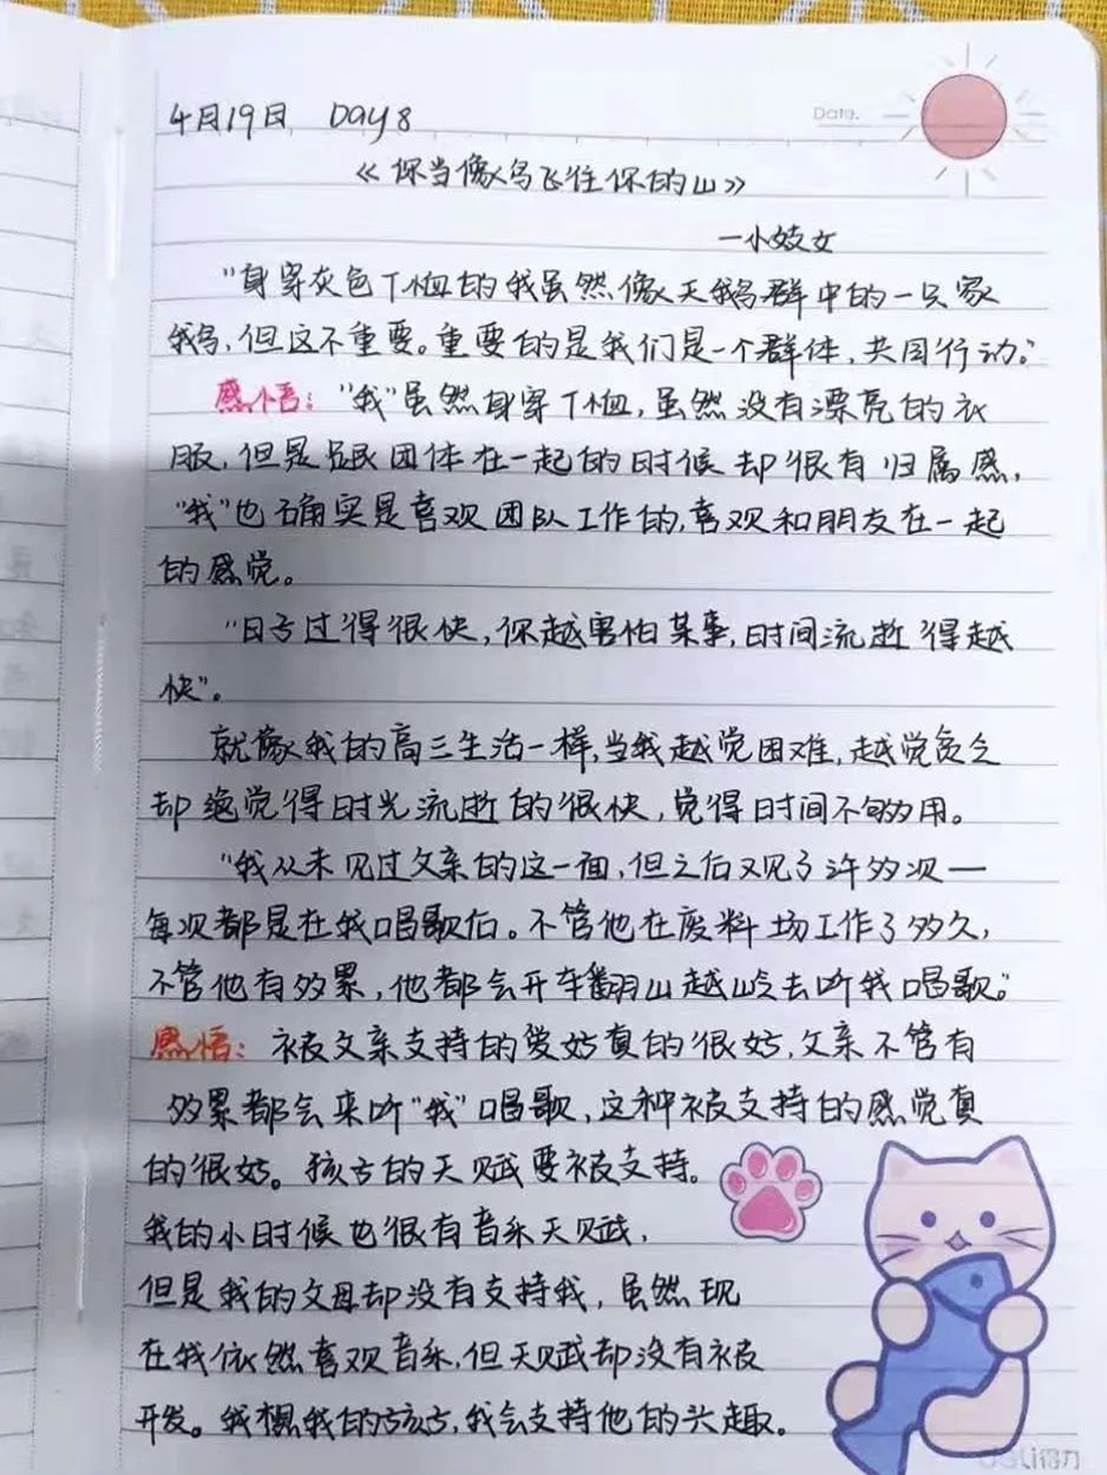 4月19日 Day8
Date.
《你当像鸟飞往你的山》
一小妓女
"身穿灰色T恤的我虽然像天鹅群中的一只家
鹅,但这不重要。重要的是我们是一个群体,共同行动。"
感悟:"我"虽然身穿T恤,虽然没有漂亮的衣
服,但是跟团体在一起的时候却很有归属感,
"我"也确实是喜欢团队工作的,喜欢和朋友在一起
的感觉。
"日子过得很快,你越害怕某事,时间流逝得越
快"。
就像我的高三生活一样,当我越觉困难,越觉贪乏
却总觉得时光流逝的很快,觉得时间不够用。
"我从未见过父亲的这一面,但之后又见了许多次一
每次都是在我唱歌后。不管他在废料场工作了多久,
不管他有多累,他都会开车翻山越岭去听我唱歌。"
感悟:被父亲支持的爱好真的很好,父亲不管有
多累都会来听"我"唱歌,这种被支持的感觉真
的很好。孩子的天赋要被支持。
我的小时候也很有音乐天赋,
但是我的父母却没有支持我,虽然现
在我依然喜欢音乐,但天赋却没有被
开发。我想我的孩子,我会支持他的兴趣。
deli得力